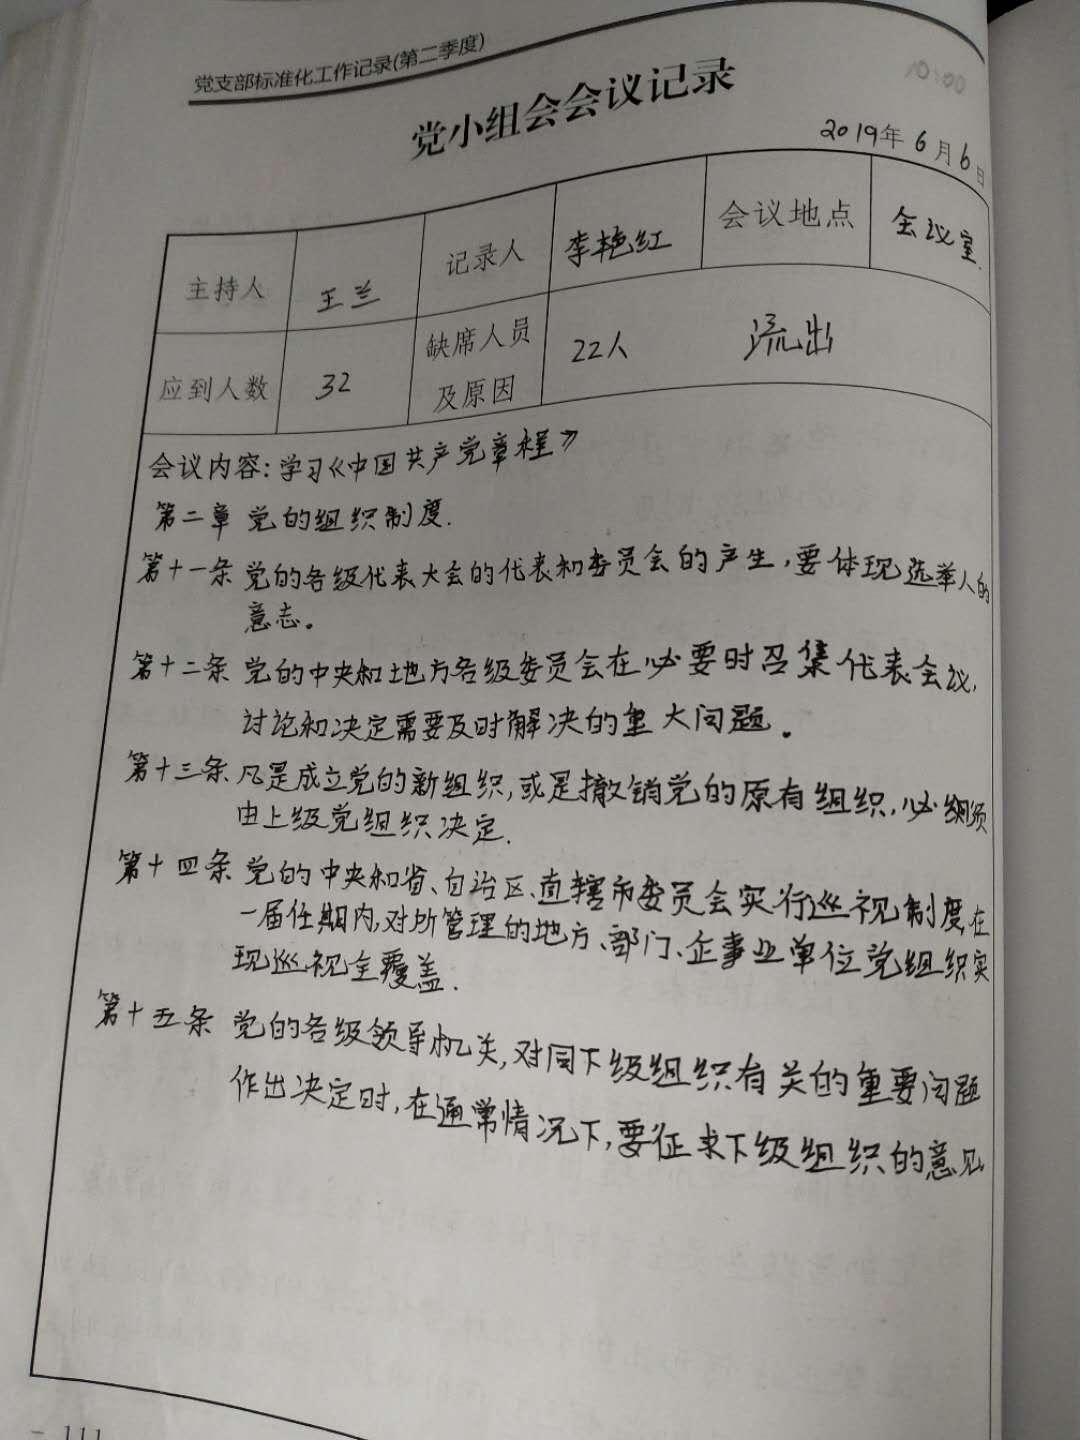 党支部标准化工作记录(第二季度)
党小组会会议记录
2019年6月6日
主持人 王兰 记录人 李艳红 会议地点 会议室.
应到人数 32 缺席人员及原因 22人 流出
会议内容:学习《中国共产党章程》
第二章 党的组织制度.
第十一条 党的各级代表大会的代表和委员会的产生,要体现选举人的
意志。
第十二条 党的中央和地方各级委员会在必要时召集代表会议,
讨论和决定需要及时解决的重大问题.
第十三条 凡是成立党的新组织,或是撤销党的原有组织,必须
由上级党组织决定.
第十四条 党的中央和省、自治区、直辖市委员会实行巡视制度,在
一届任期内,对所管理的地方、部门、企事业单位党组织实
现巡视全覆盖.
第十五条 党的各级领导机关,对同下级组织有关的重要问题
作出决定时,在通常情况下,要征求下级组织的意见
- 111